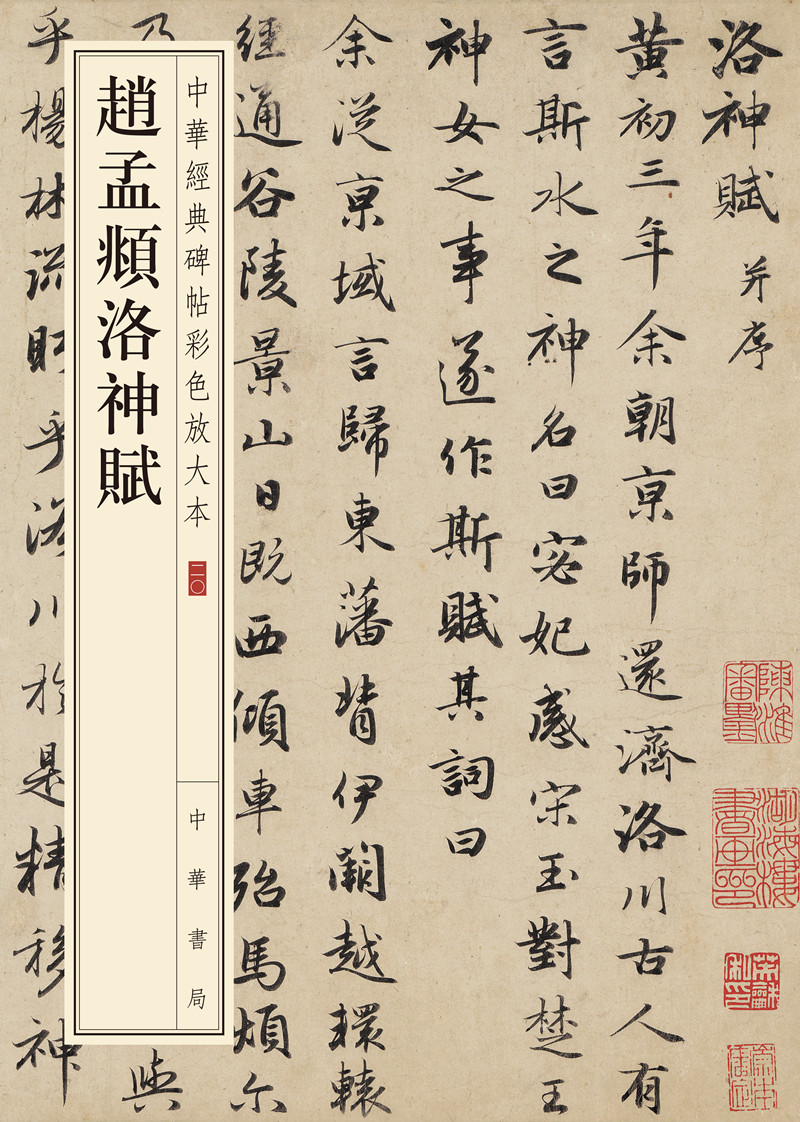 洛神賦 并序
黄初三年余朝京師還濟洛川古人有
言斯水之神名曰宓妃感宋玉對楚王
神女之事遂作斯賦其詞曰
余從京域言歸東藩背伊闕越轘轅
經通谷陵景山日既西傾車殆馬煩尔
乃
與
乎楊林流眄乎洛川於是精移神
中華經典碑帖彩色放大本 二〇
中華書局
趙孟頫洛神賦